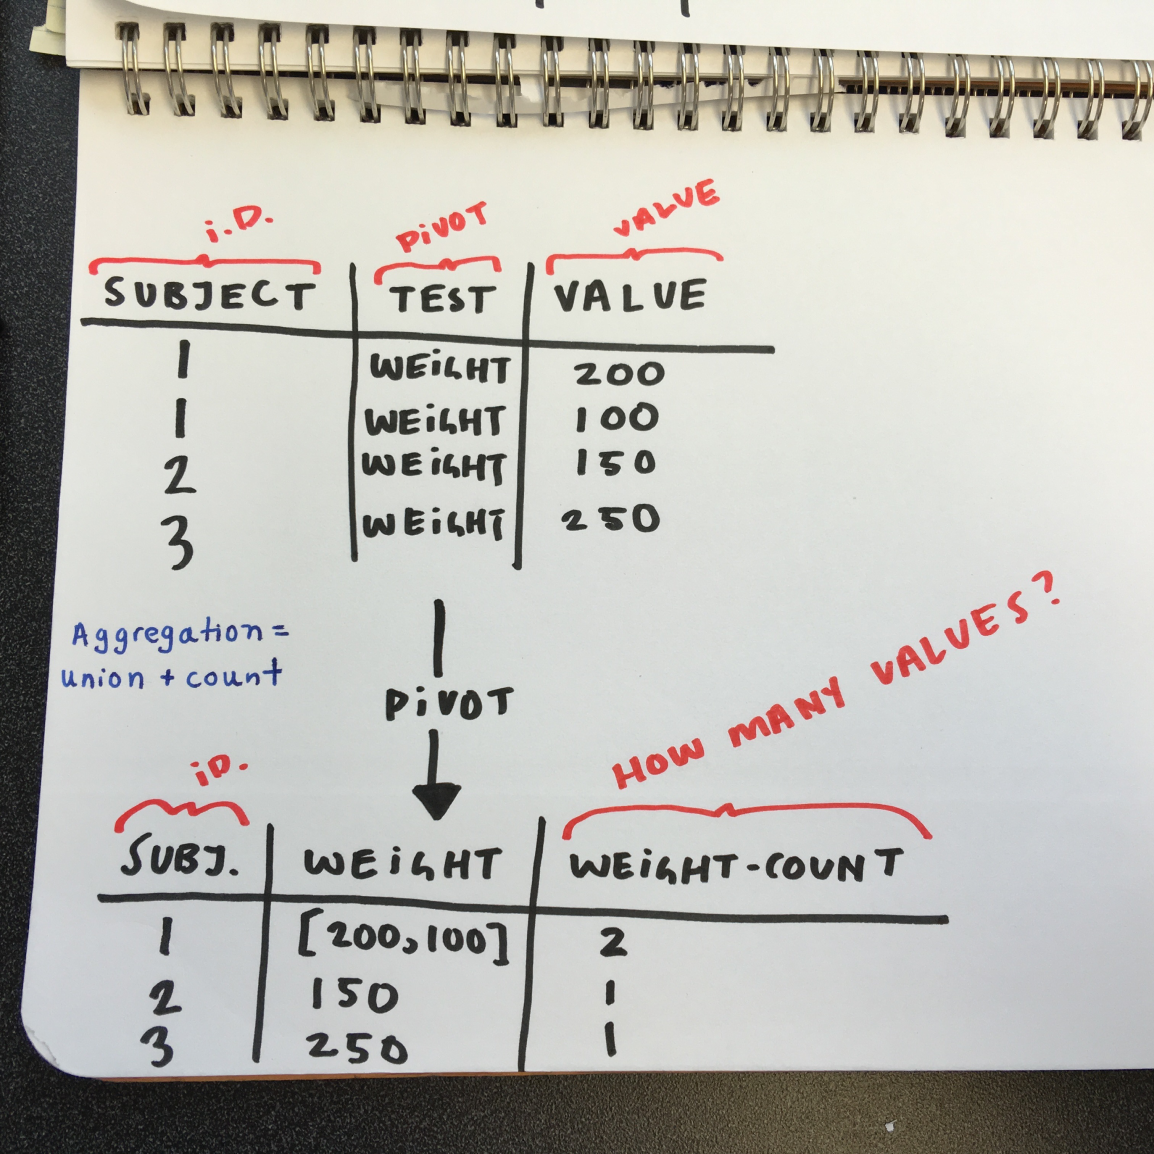 i.D. PiVOT VALUE
SUBJECT TEST VALUE
1 WEiGHT 200
1 WEiGHT 100
2 WEiGHT 150
3 WEiGHT 250
Aggregation =
union + count
PiVOT
HOW MANY VALUES?
iD.
SUBJ. WEiGHT WEiGHT-COUNT
1 [200,100] 2
2 150 1
3 250 1